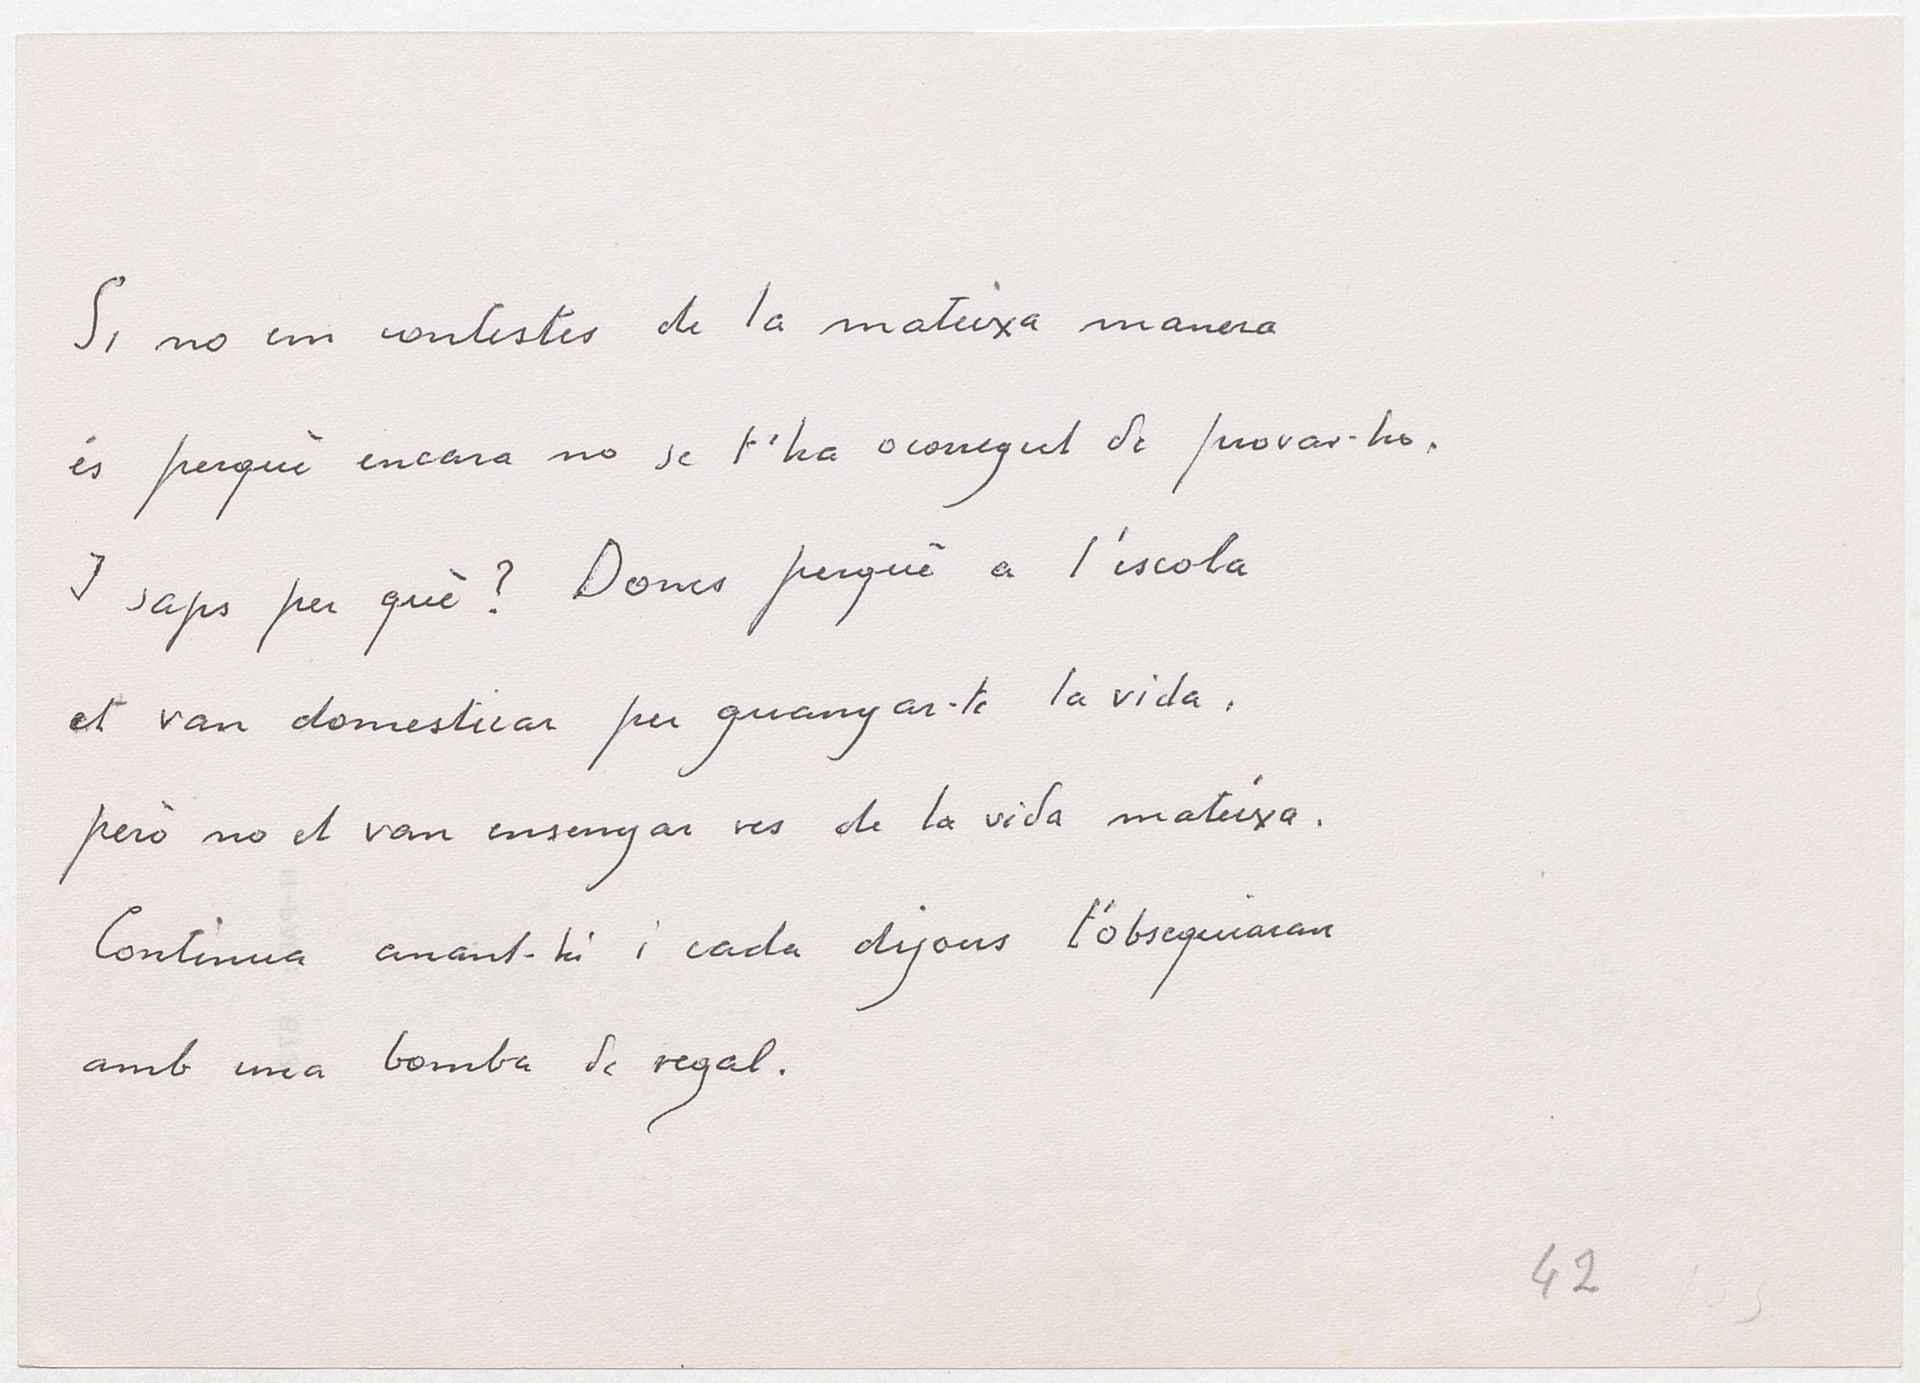 Si no em contestes de la mateixa manera
és perquè encara no se t'ha ocorregut de provar-ho.
I saps per què? Doncs perquè a l'escola
et van domesticar per guanyar-te la vida,
però no et van ensenyar res de la vida mateixa.
Continua anant-hi i cada dijous t'obsequiaran
amb una bomba de regal.
42